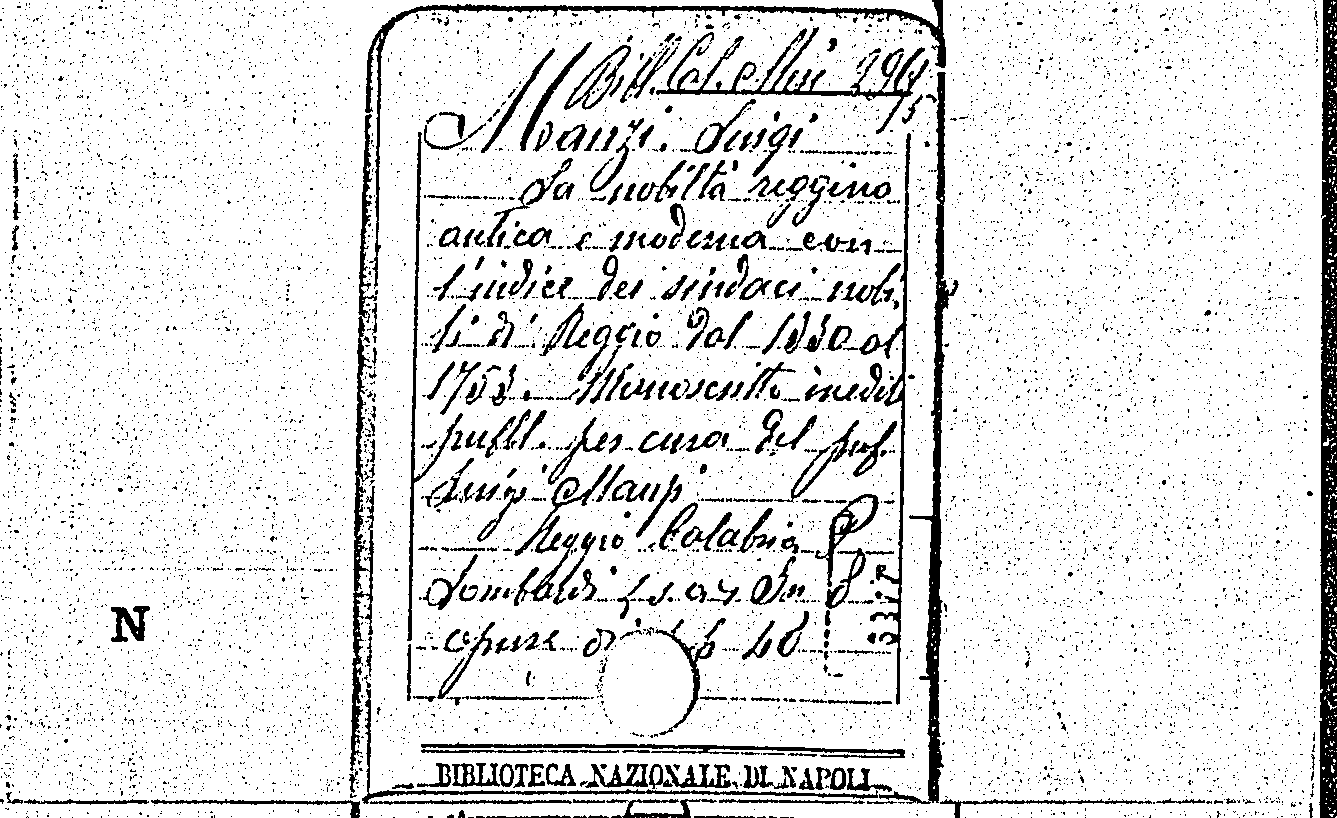 Bibl. Cal. e Mer. 29G
15
Manzi. Luigi
La nobiltà reggina
antica e moderna con
l'indice dei sindaci nobi,
li di Reggio dal 1330 al
1753. Manoscritto inedit
pubbl. per cura del prof.
Luigi Manzi
Reggio Calabria
Lombardi s. a. In 8
48
N
BIBLIOTECA NAZIONALE DI NAPOLI